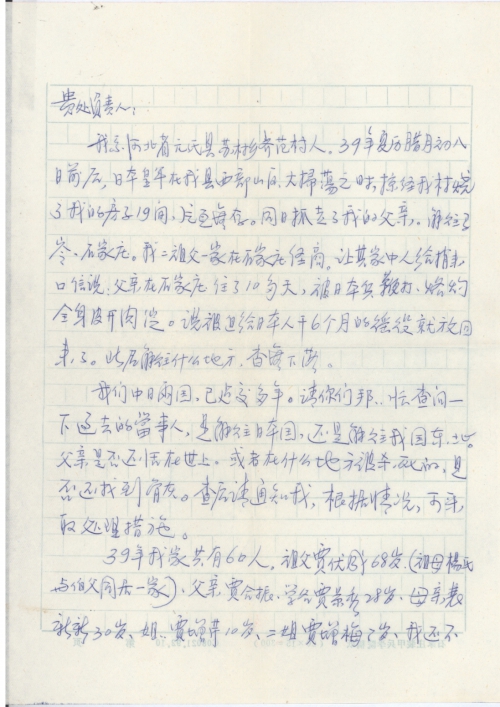 贵处负责人：
我系河北省元氏县苏村乡齐范村人，39年夏历腊月初八
日前后，日本皇军在我县西部山区大掃荡之时，掠经我村烧
了我的房子19间，片瓦無存。同日抓走了我的父亲，解往了
家、石家庄。我二祖父一家在石家庄经商。让其家中人给捎来
口信说：父亲在石家庄住了10多天，被日本兵鞭打、烙灼
全身皮开肉绽。说被迫给日本人干6个月的徭役就放回
来了。此后解往什么地方，杳無下落。
我们中日两国，已建交多年。请你们邦忙查问一
下过去的當事人，是解往日本国，还是解往我国东北。
父亲是否还活在世上。或者在什么地方被杀，死的，是
否还找到骨灰。查后请通知我，根据情况，可采
取处理措施。
39年我家共有60人，祖父贾优 68岁（祖母楊氏
与伯父同居一家），父亲贾合振、学名贾景秀28岁、母亲裴
新新30岁、姐 贾增芹10岁、二姐贾增梅7岁、我还不